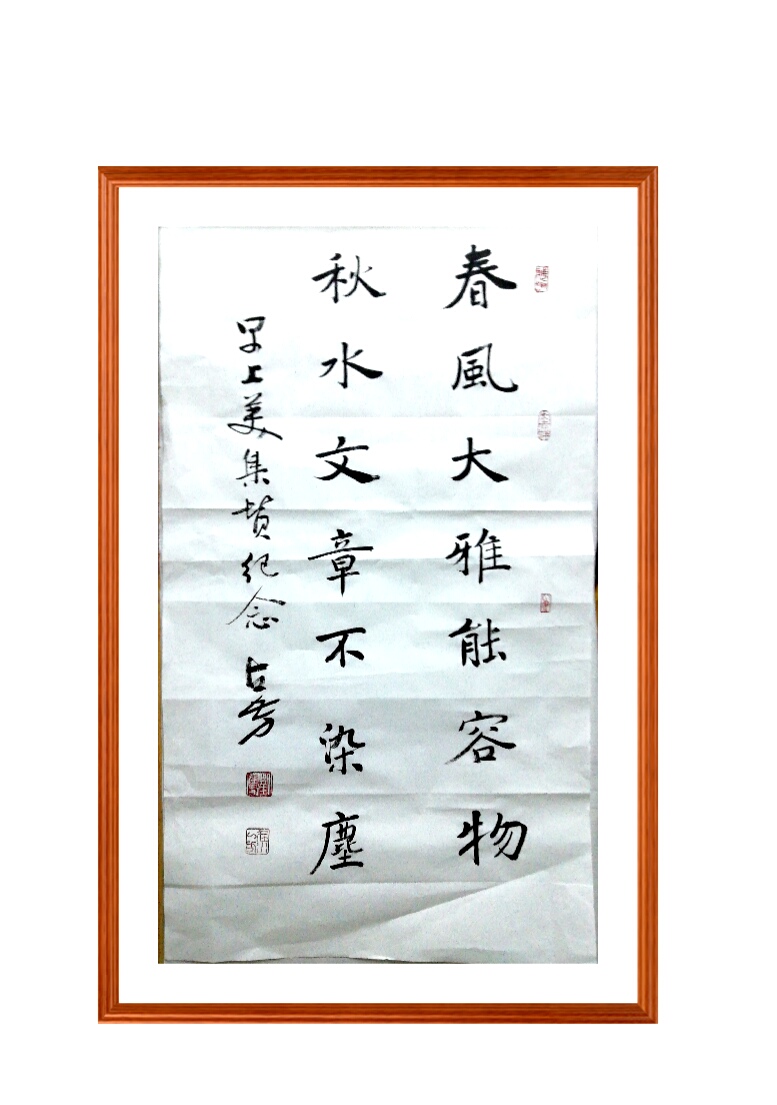 春風大雅能容物
秋水文章不染塵
早上美集赞纪念 占芳